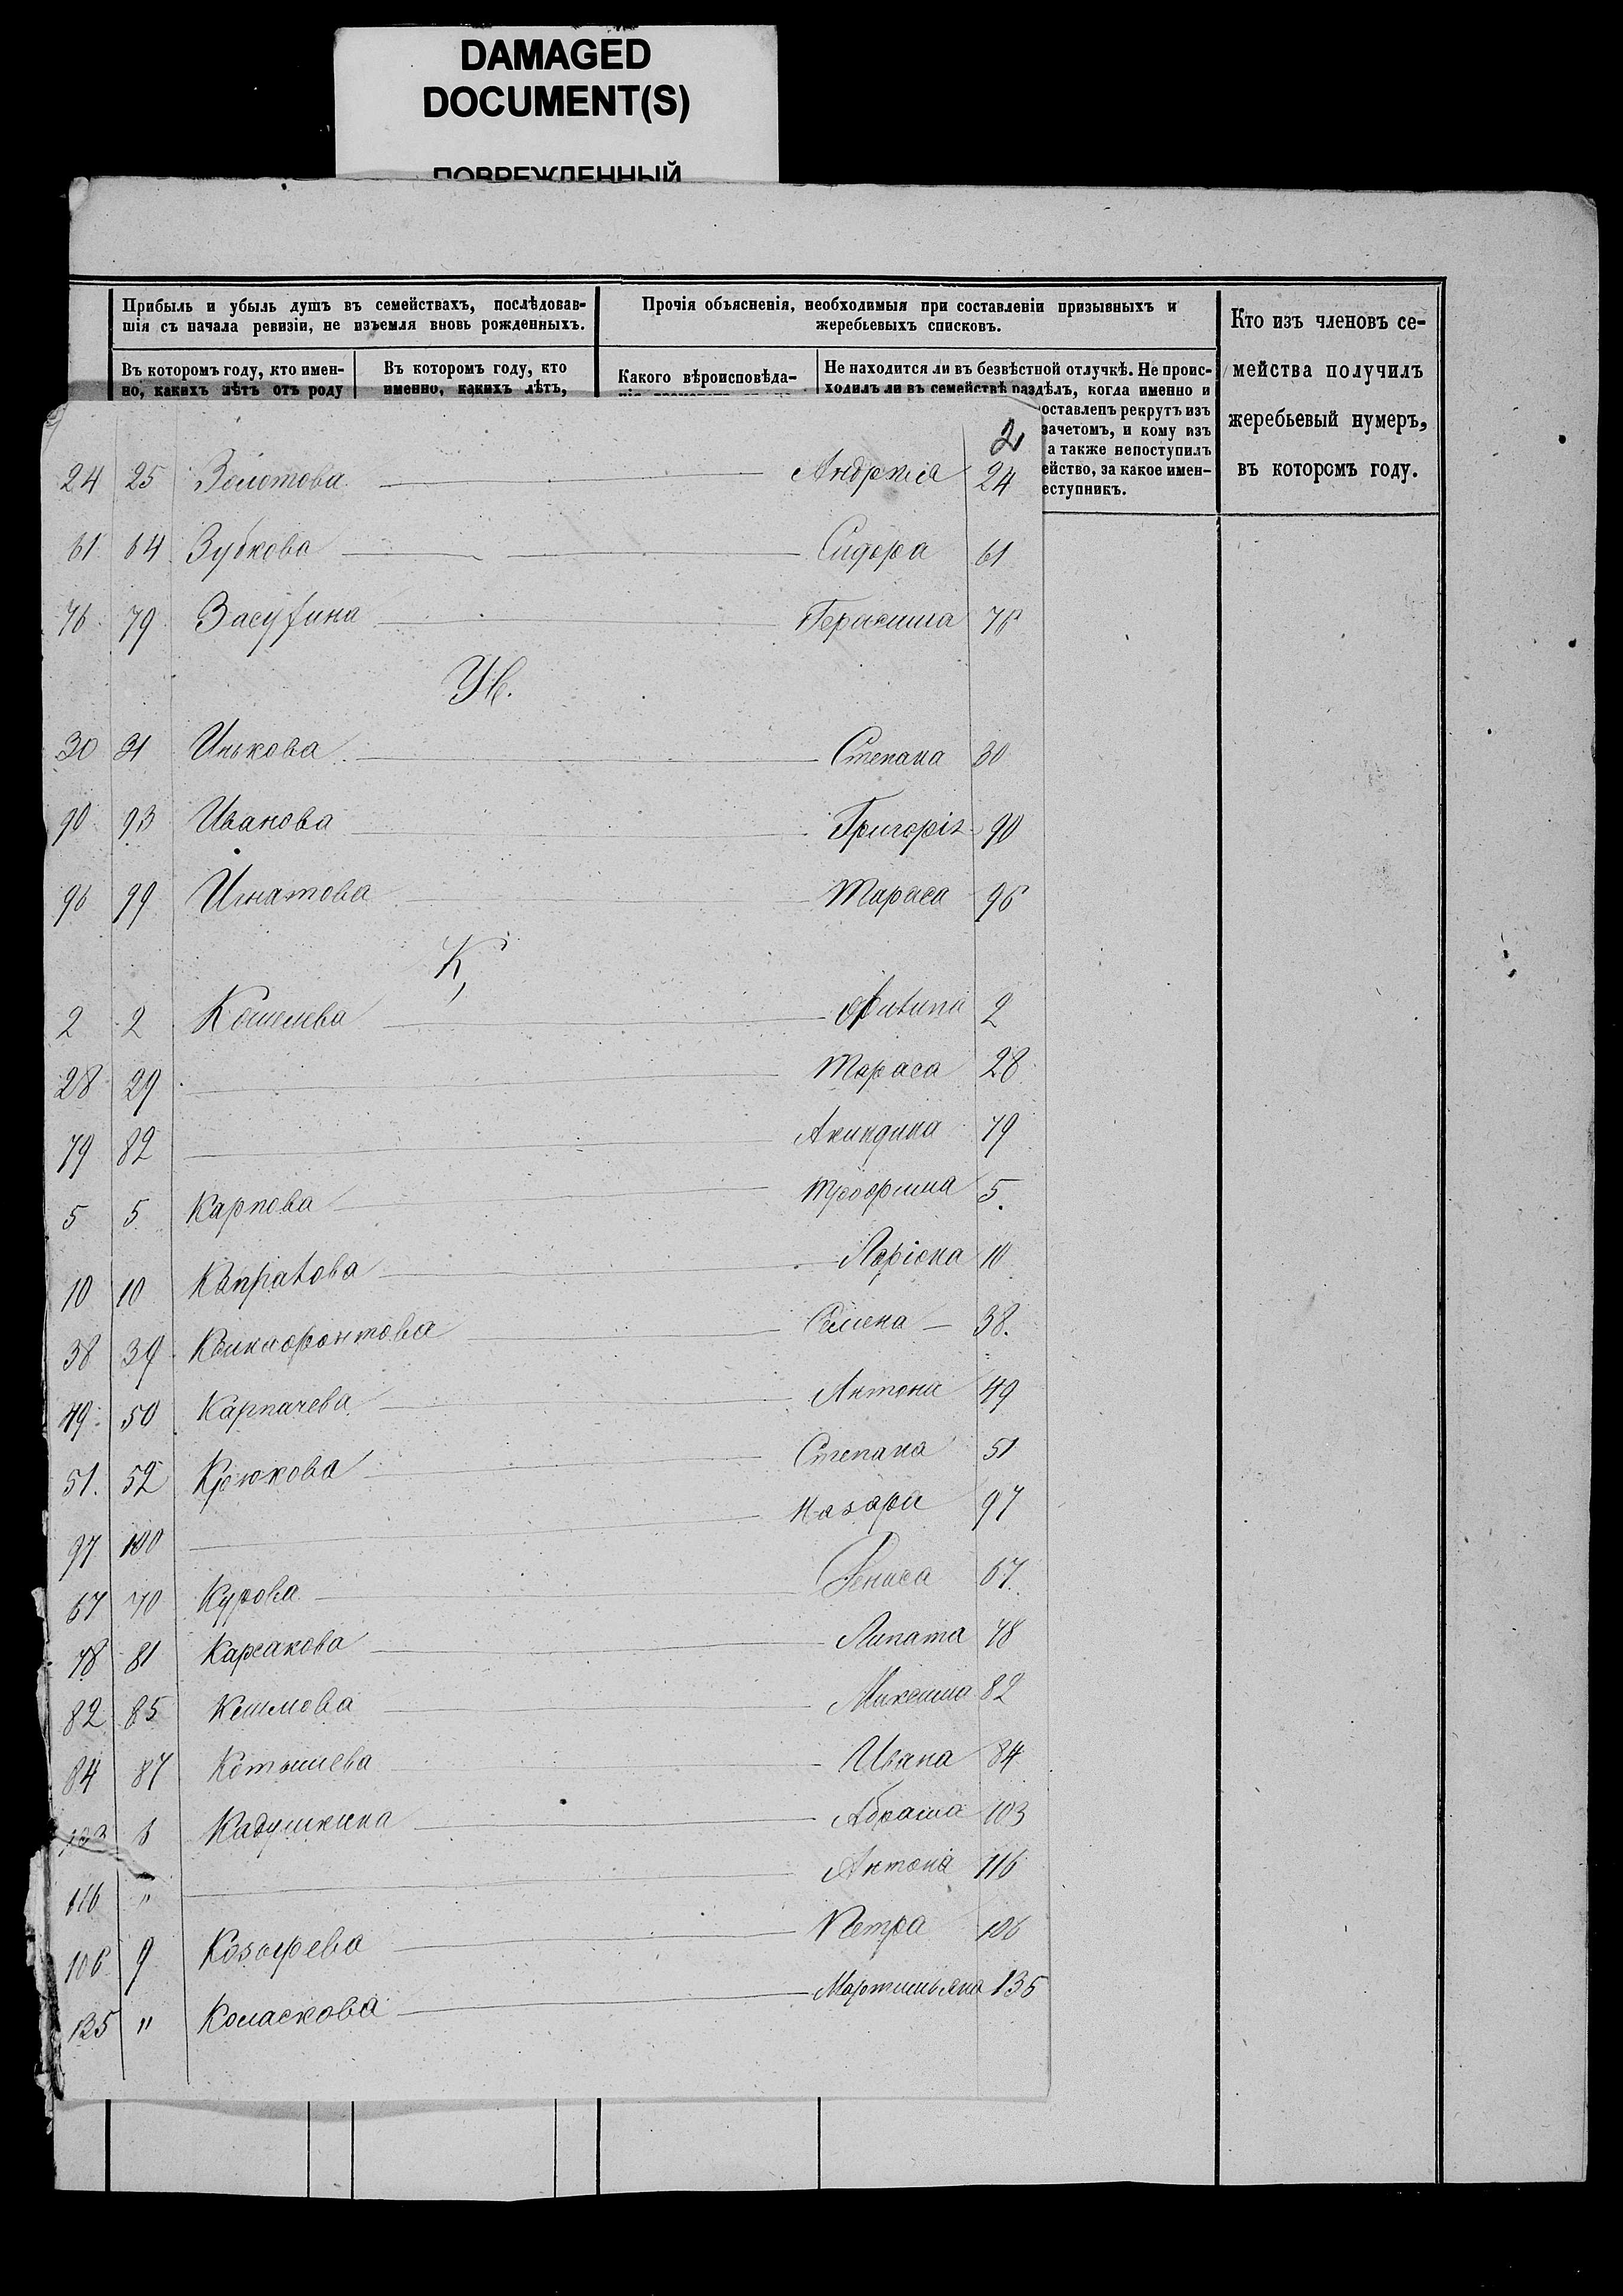 DAMAGED
DOCUMENT(S)
ПОВРЕЖДЕННЫЙ
Прибыль и убыль душъ въ семействахъ, послѣдовав-
шія съ начала ревизіи, не изъемля вновь рожденныхъ.
Въ которомъ году, кто имен-
но, какихъ лѣтъ отъ роду
Въ которомъ году, кто
именно, какихъ лѣтъ,
Прочія объясненія, необходимыя при составленіи призывныхъ и
жеребьевыхъ списковъ.
Какого вѣроисповѣда-
Не находится ли въ безвѣстной отлучкѣ. Не проис-
ходилъ ли въ семействѣ раздѣлъ, когда именно и
оставленъ рекрутъ изъ
зачетомъ, и кому изъ
а также непоступилъ
ейство, за какое имен-
еступникъ.
Кто изъ членовъ се-
мейства получилъ
жеребьевый нумеръ,
въ которомъ году.
2
24 25 Золотова Андрея 24
61 64 Зубкова Сидора 61
76 79 Засухина Герасима 76
И.
30 31 Инькова Степана 30
90 93 Иванова Григорія 90
96 99 Игнатова Тараса 96
К
2 2 Кошелева 2
28 29 Тараса 28
79 82 Акиндина 79
5 5 Карпова Трофима 5.
10 10 Ларіона 10
38 39 Семена 38.
49 50 Карпачева Антона 49
51. 52 Крюкова Степана 51
97 100 Назара 97
67 70 Курова Дениса 67
78 81 Карсакова Липата 78
82 85 Климова Максима 82
84 87 Котышева Ивана 84
103 8 Кадушкина Абрама 103
116 " Антона 116
106 9 Козырева Петра 106
135 " Коласкова Мартимьяна 135